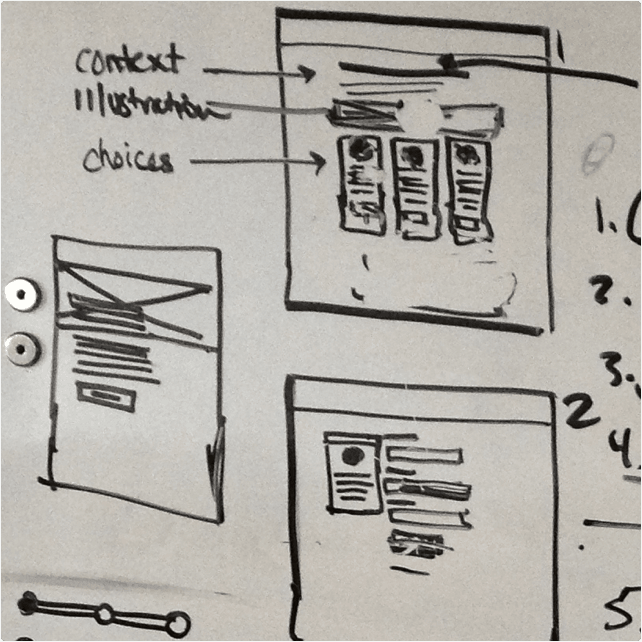 context
Illustration
choices
1
1.
2.
3.
2
4.
5